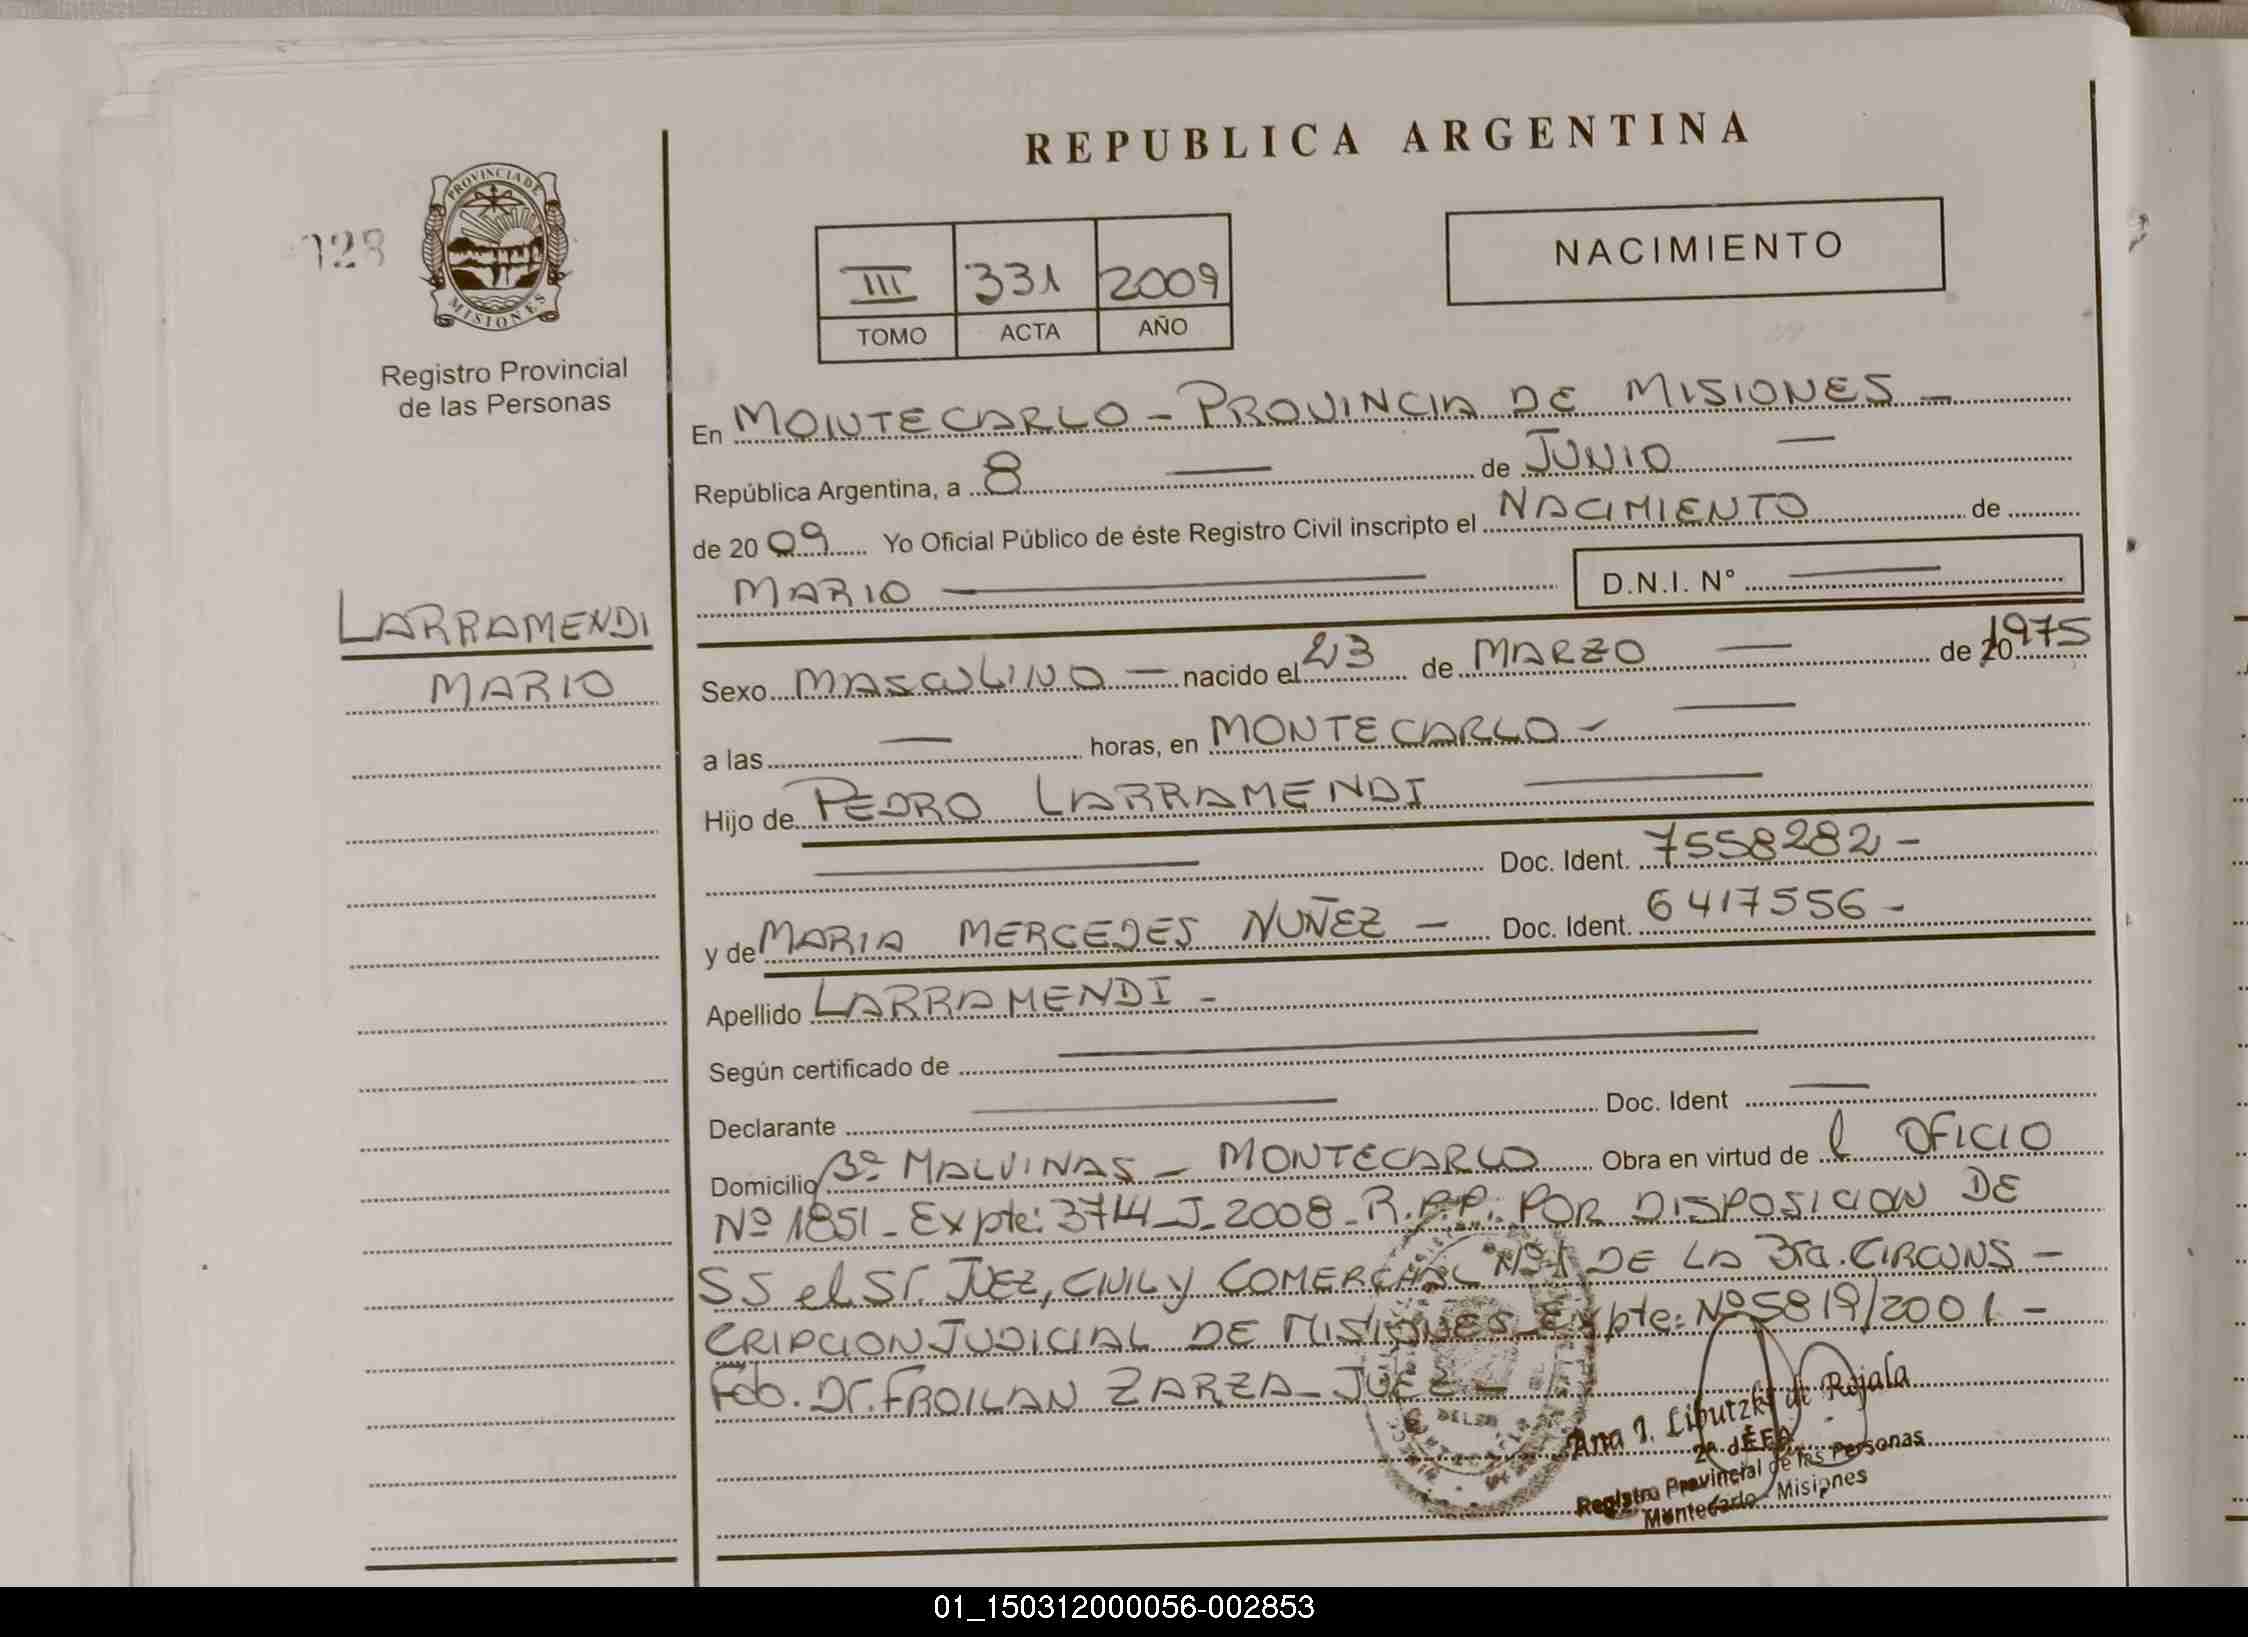 REPUBLICA ARGENTINA
128
PROVINCIA DE
MISIONES
Registro Provincial
de las Personas
III 331 2009
TOMO ACTA AÑO
NACIMIENTO
En MONTECARLO - PROVINCIA DE MISIONES -
República Argentina, a 8 — de JUNIO —
de 2009 Yo Oficial Público de éste Registro Civil inscripto el NACIMIENTO de
MARIO — D.N.I. N° —
LARRAMENDI
MARIO
Sexo MASCULINO — nacido el 23 de MARZO — de 1975
a las — horas, en MONTECARLO - —
Hijo de PEDRO LARRAMENDI —
— Doc. Ident. 7558282 -
y de MARIA MERCEDES NUÑEZ - Doc. Ident. 6417556 -
Apellido LARRAMENDI -
Según certificado de —
Declarante — Doc. Ident —
Domicilio Bº MALVINAS - MONTECARLO Obra en virtud de l OFICIO
Nº 1851 - Expte: 3714-J-2008 - R.P.P. POR DISPOSICION DE
SS el Sr. JUEZ, CIVIL y COMERCIAL Nº 1 DE LA 3ra. CIRCUNS -
CRIPCION JUDICIAL DE MISIONES - Expte: Nº 5819/2001 -
Fdo. Dr. FROILAN ZARZA - JUEZ -
Ana I. Liputzky de Rojala
Registro Provincial de las Personas
Montecarlo - Misiones
01_150312000056-002853